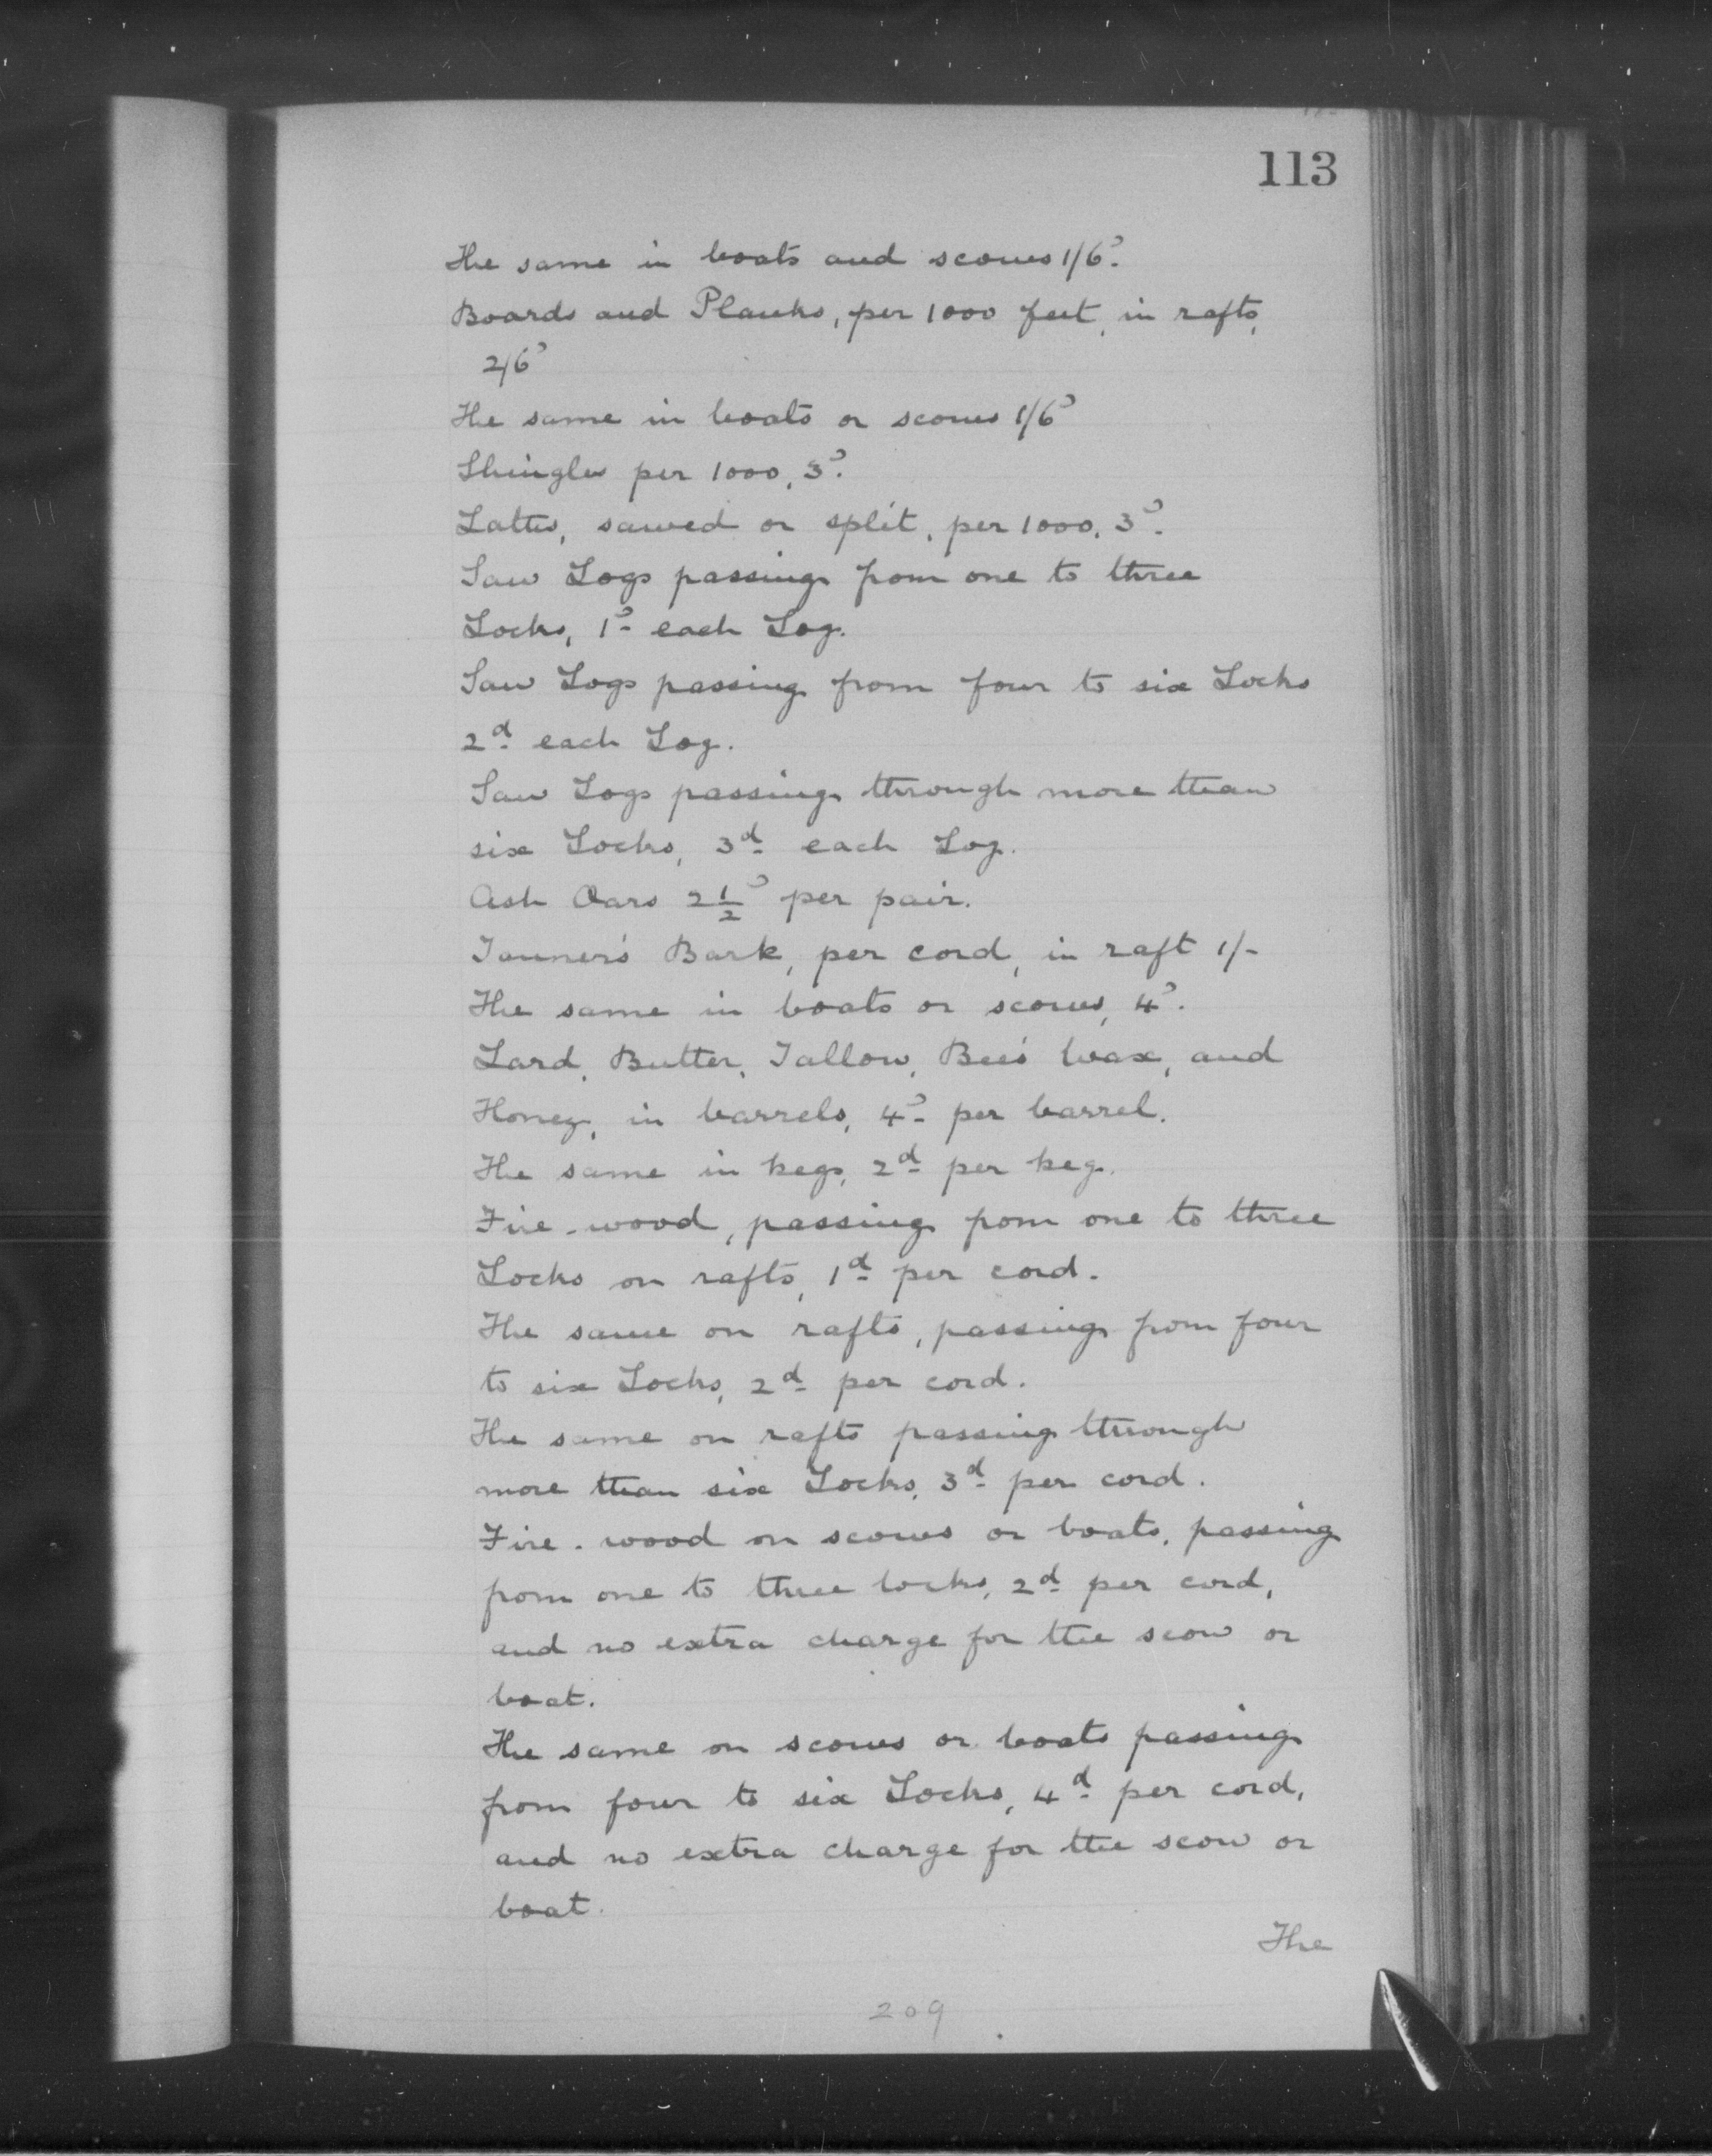 113
The same in boats and scows 1/6d.
Boards and Planks, per 1000 feet, in rafts,
2/6d
The same in boats or scows 1/6d
Shingles per 1000, 3d.
Latts, sawed or split, per 1000, 3d.
Saw Logs passing from one to three
Locks, 1d. each Log.
Saw Logs passing from four to six Locks
2d. each Log.
Saw Logs passing through more than
six Locks, 3d. each Log.
Ash Oars 2 1/2d per pair.
Tanner's Bark, per cord, in raft 1/-
The same in boats or scows, 4d.
Lard, Butter, Tallow, Bee's Wax, and
Honey, in barrels, 4d. per barrel.
The same in kegs, 2d. per keg.
Fire-wood, passing from one to three
Locks on rafts, 1d. per cord.
The same on rafts, passing from four
to six Locks, 2d. per cord.
The same on rafts passing through
more than six Locks, 3d. per cord.
Fire-wood on scows or boats, passing
from one to three locks, 2d. per cord,
and no extra charge for the scow or
boat.
The same on scows or boats passing
from four to six Locks, 4d. per cord,
and no extra charge for the scow or
boat.
The
209